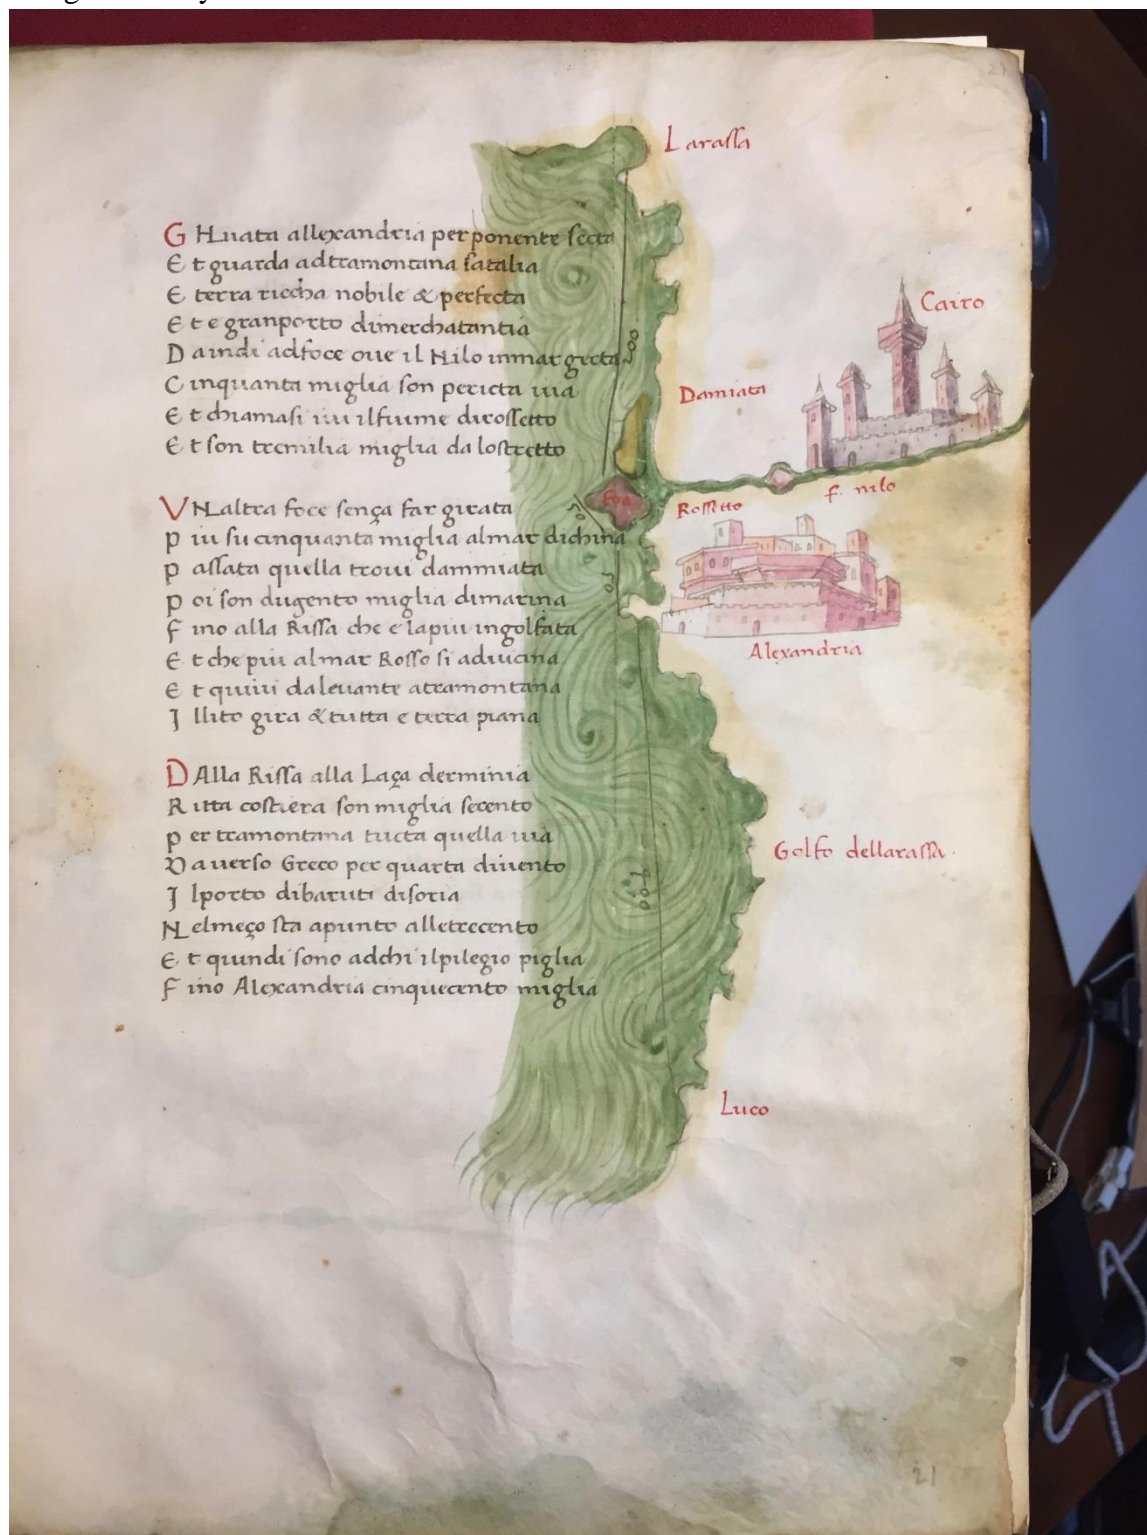 21
Larassa
GHuata allexandria per ponente secta
Et guarda adtramontana satalia
E terra riccha nobile & perfecta
Et e granporto dimerchatantia
Daindi adfoce oue il Nilo inmar gecta
Cinquanta miglia son pericta uia
Et chiamasi iui ilfiume dirossetto
Et son tremilia miglia da lostretto
Cairo
Damiata
f. nilo
Rossetto
foa
Alexandria
VNaltra foce sença far girata
Piu su cinquanta miglia almar dichina
Passata quella troui dammiata
Poi son dugento miglia dimarina
Fino alla Rissa che e lapiu ingolfata
Et che piu almar Rosso si aduicina
Et quiui daleuante atramontana
Illito gira & tutta e terra piana
DAlla Rissa alla Laça derminia
Ritta costiera son miglia secento
Per tramontana tucta quella uia
Va uerso Greco per quarta diuento
Ilporto dibaruti disoria
Nelmeço sta apunto alletrecento
Et quindi sono adchi ilpilegio piglia
Fino Alexandria cinquecento miglia
Golfo dellarassa.
Luco
21